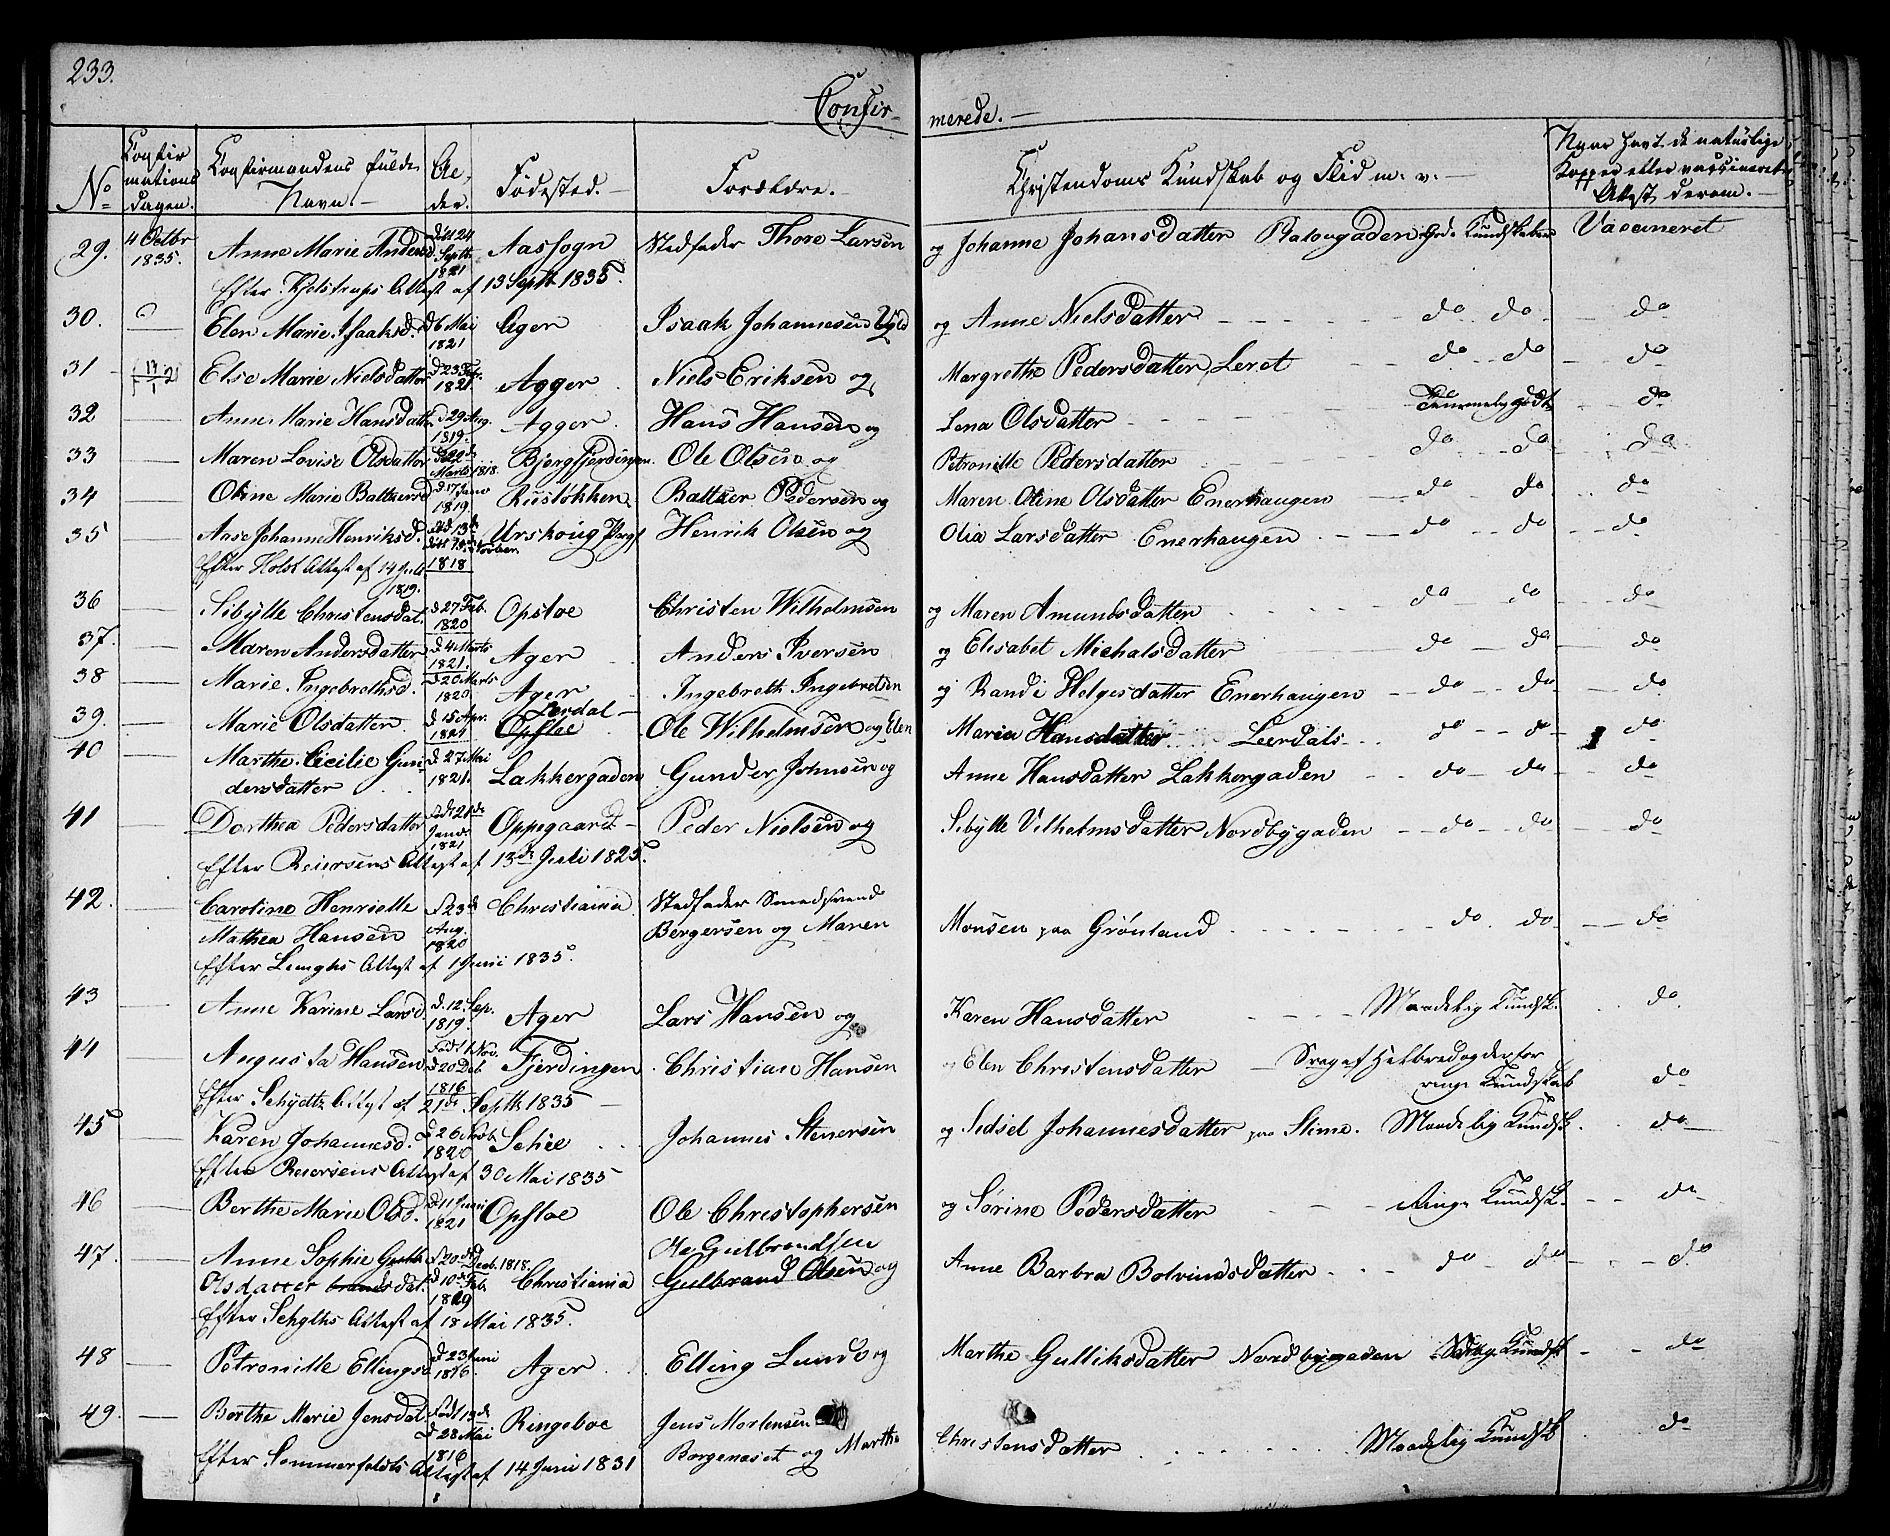 233.
Confir-
merede.
No
Confir
mations
dagen.
Confirmandens fulde
Navn.
Al-
der.
Fødested.
Forældre.
Christendoms Kundskab og Flid m. v.
Naar havt de naturlige
Kopper eller vaccineret
Attest derom.
29. 4 Octbr Anne Marie Andersd. Døbt 24 Aassogn Stedfader Thore Larsen og Johanne Johansdatter Vaccineret
1835. Septb.
1821
Efter Attest af 13 Septb 1835.
30. Elen Marie Isaaksd. d 6 Mai Ager Isaak Johannesen og Anne Nielsdatter do do do
1821
31 Else Marie Nielsdatter d 23 Feb. Agger Niels Eriksen og Margrethe Pedersdatter Leret do do do
1821.
32 Anne Marie Hansdatter d 29 Aug. Agger Hans Hansen og Lena Olsdatter do
1819.
33 Maren Lovise Olsdatter Ole Olsen og Petronille Pedersdatter do do do
Marts 1818.
34 Oline Marie Baltzersd d 17 Janv Rusløkken Baltzer Pedersen og Maren Oline Olsdatter Enerhaugen do do do
1819.
35 Aase Johanne Henriksd. Urskoug Henrik Olsen og Olia Larsdatter Enerhaugen do do do
Efter Holst Attest af 14 Juli 1818
1819.
36 Sibylle Christensdat. d 27 Feb. Opsloe Christen Wilhelmsen og Maren Amundsdatter do do do
1820
37. Maren Andersdatter d 4 Marts Ager Anders Iversen og Elisabet Michalsdatter do do do
1821.
38 Marie Ingebrethsd. d 20 Marts Ager Ingebreth Ingebretsen og Randi Helgesdatter Enerhaugen do do do
1820.
Lerdal
39. Marie Olsdatter d 15 Apr. Opsloe Ole Wilhelmsen og Elen Maria Hansdatter Leerdal do do do
1821
40 Marthe Cicilie Gun- d. 27 Mai Lakkergaden Gunder Johnsen og Anne Hansdatter Lakkergaden do do do
dersdatter 1821.
41 Dorthea Pedersdatter Født 21de Oppegaard Peder Nielsen og Sibylle Vilhelmsdatter Nordbygaden do do do
Janv.
1821
Efter Reiersens Attest af 13de Juli 1825.
42. Caroline Henriette f 23de Christiania Stedfader Smedsvend
Mathea Hansen Aug. Bergersen og Maren Monsen paa Grønland do do do
1820
Efter Attest af 1 Juni 1835.
43 Anne Karine Larsd. d. 12. Sep. Ager Lars Hansen og Karen Hansdatter Maadelig Kundsk. do
1819.
44 Augusta Hansen Født 1 Nov. Fjerdingen Christian Hansen og Elen Christensdatter Svag af Helbred og derfor
d 20 Deb ringe Kundskab do
1816
Efter Schydtz Attest af 21de Septb 1835
45 Karen Johannesd. Johannes Stenersen og Sidsel Johannesdatter paa Slime. Maadelig Kundsk. do
1820
Efter Reiersens Attest af 30 Mai 1835
46 Berthe Marie Olsd. d 11 Juni Opsloe Ole Christophersen og Sørine Pedersdatter Ringe Kundsk. do
1821
47. Anne Sophie Gulb f 20de Decb. 1818. Ole Gulbrandsen
Olsdatter brandsdat. d 10de Feb. Christiania Gulbrand Olsen og Anne Barbra Bolvindsdatter do do do
1819
Efter Attest af 18 Mai 1835.
48 Petronille Ellingsd d 23 Juni Ager Elling Lund og Marthe Gulliksdatter Nordbygaden Kundsk do
1816.
49. Berthe Marie Jensdat. Født 13de Ringeboe Jens Mortensen
d 28 Mai Borgenæset og Marthe Christensdatter Maadelig Kundsk do
1816
Efter Sommerfeldts Attest af 14 Juni 1831